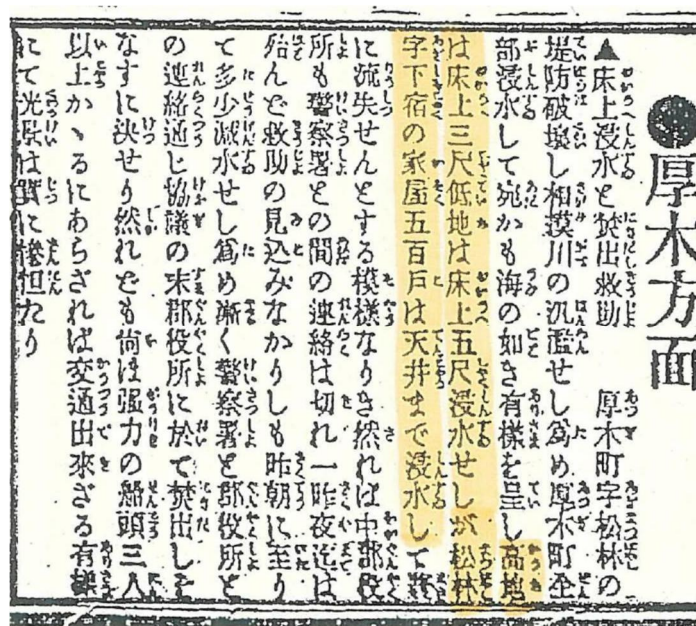 ●厚木方面
▲床上浸水と焚出救助 厚木町字松林の
堤防破壊し相摸川の氾濫せし爲め厚木町全
部浸水して宛かも海の如き有樣を呈し高地
は床上三尺低地は床上五尺浸水せしが松林
字下宿の家屋五百戸は天井まで浸水して
に流失せんとする模樣なりき然れば中郡役
所も警察署との間の連絡は切れ一昨夜迄は
殆んど救助の見込みなかりしも昨朝に至り
て多少減水せし爲め漸く警察署と郡役所と
の連絡通じ協議の末郡役所に於て焚出しを
なすに決せり然れども尚ほ强力の船頭三人
以上かゝるにあらざれば交通出來ざる有樣
にて光景は實に慘怛たり